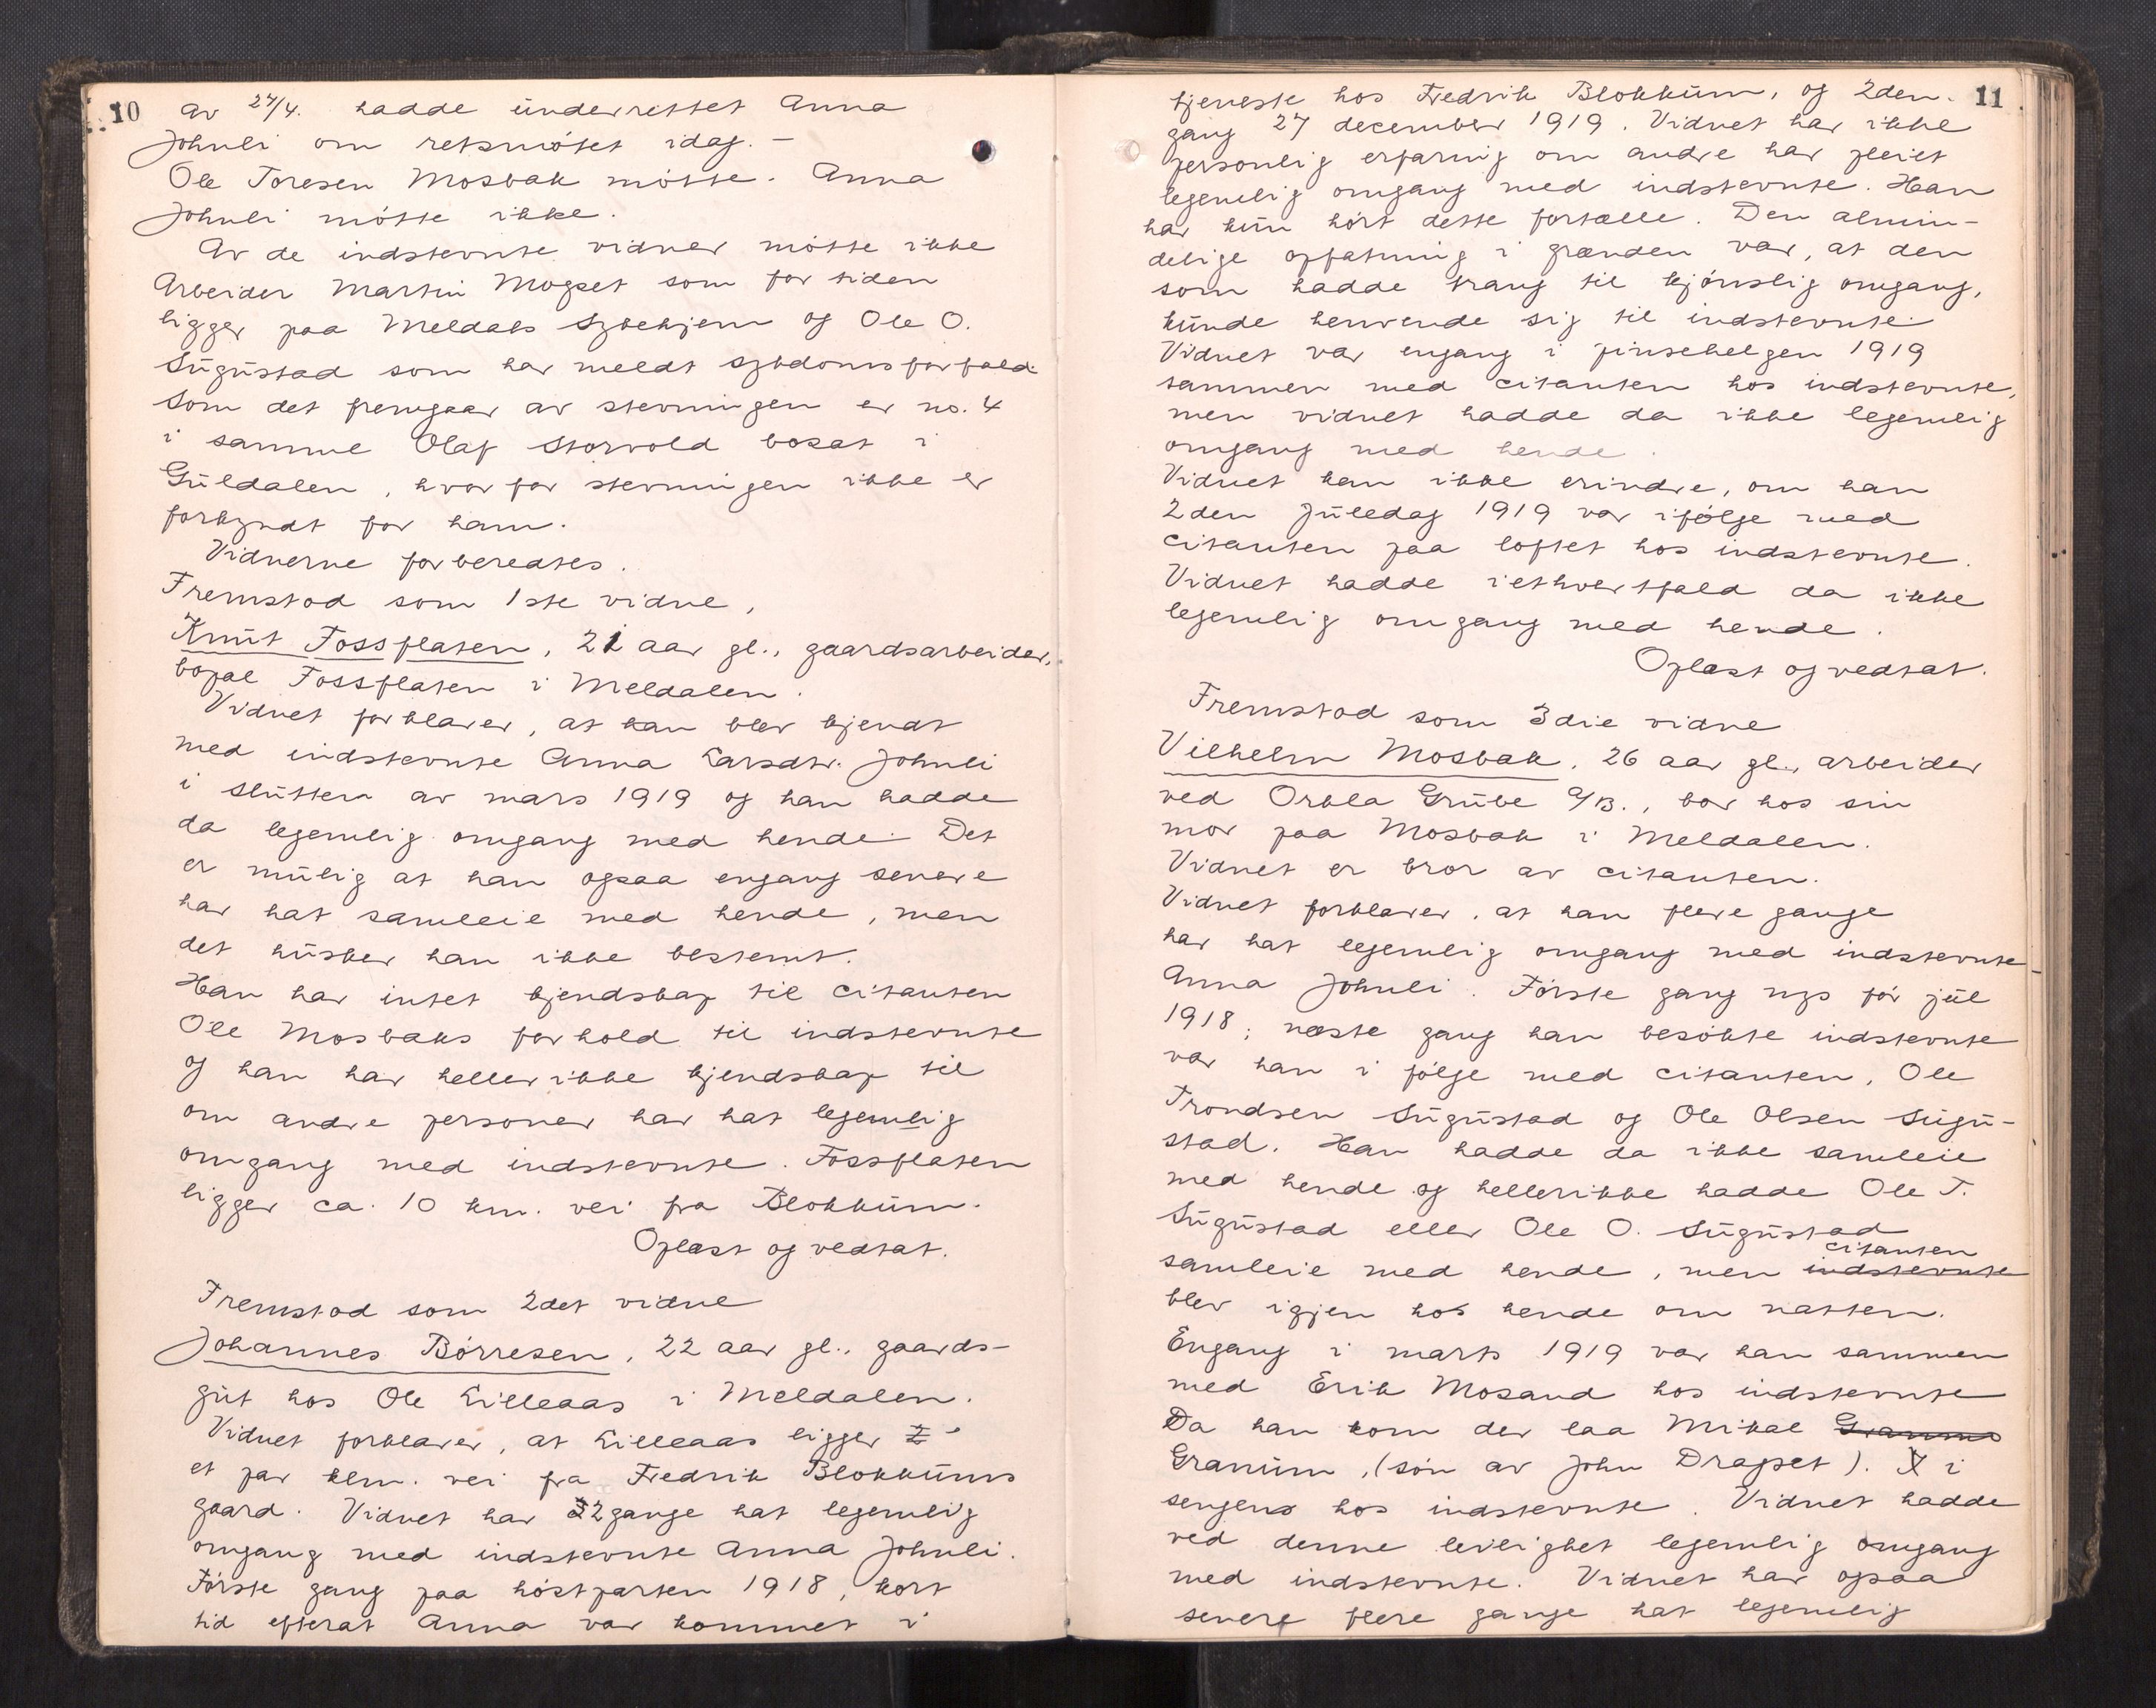 10
av 27/4. hadde underrettet Anna
Johnli om retsmøtet idag. -
Ole Toresen Mosbak møtte. Anna
Johnli møtte ikke.
Av de indstevnte vidner møtte ikke
Arbeider Martin Mogset som for tiden
ligger paa Meldals Sykehjem og Ole O.
Sugustad som har meldt sykdomsforfald.
Som det fremgaar av stevningen er no. 4
i samme Olaf Storvold bosat i
Guldalen, hvorfor stevningen ikke er
forkyndt for ham.
Vidnerne forberedtes.
Fremstod som 1ste vidne,
Knut Fossflaten, 21 aar gl., gaardsarbeider,
bopæl Fossflaten i Meldalen.
Vidnet forklarer, at han blev kjendt
med indstevnte Anna Larsdtr. Johnli
i slutten av mars 1919 og han hadde
da legemlig omgang med hende. Det
er mulig at han ogsaa engang senere
har hat samleie med hende, men
det husker han ikke bestemt.
Han har intet kjendskap til citanten
Ole Mosbaks forhold til indstevnte
og han har heller ikke kjendskap til
om andre personer har hat legemlig
omgang med indstevnte. Fossflaten
ligger ca. 10 km. vei fra Blokkum.
Oplæst og vedtat.
Fremstod som 2det vidne
Johannes Børresen, 22 aar gl., gaards-
gut hos Ole Lilleaas i Meldalen.
Vidnet forklarer, at Lilleaas ligger
et par klm. vei fra Fredrik Blokkums
gaard. Vidnet har 2 gange hat legemlig
omgang med indstevnte Anna Johnli.
Første gang paa høstparten 1918, kort
tid efterat Anna var kommet i
11
tjeneste hos Fredrik Blokkum, og 2den.
gang 27 december 1919. Vidnet har ikke
personlig erfaring om andre har pleiet
legemlig omgang med indstevnte. Han
har kun hørt dette fortælle. Den almin-
delige opfatning i grænden var, at den
som hadde trang til kjønslig omgang,
kunde henvende sig til indstevnte.
Vidnet var engang i pinsehelgen 1919
sammen med citanten hos indstevnte,
men vidnet hadde da ikke legemlig
omgang med hende.
Vidnet kan ikke erindre, om han
2den Juledag 1919 var ifølge med
citanten paa loftet hos indstevnte.
Vidnet hadde iethvertfald da ikke
legemlig omgang med hende.
Oplæst og vedtat.
Fremstod som 3die vidne
Vilhelm Mosbak, 26 aar gl., arbeider
ved Orkla Grube A/B., bor hos sin
mor paa Mosbak i Meldalen.
Vidnet er bror av citanten.
Vidnet forklarer, at han flere gange
har hat legemlig omgang med indstevnte
Anna Johnli. Første gang nys før jul
1918; næste gang han besøkte indstevnte
var han i følge med citanten, Ole
Trondsen Sugustad og Ole Olsen Sugu-
stad. Han hadde da ikke samleie
med hende og hellerikke hadde Ole T.
Sugustad eller Ole O. Sugustad
citanten
samleie med hende, men indstevnte
blev igjen hos hende om natten.
Engang i mars 1919 var han sammen
med Erik Mosand hos indstevnte
Da han kom der laa Mikal
Granum, (søn av John Drapset). i
sengen hos indstevnte. Vidnet hadde
ved denne leilighet legemlig omgang
med indstevnte. Vidnet har ogsaa
senere flere gange hat legemlig